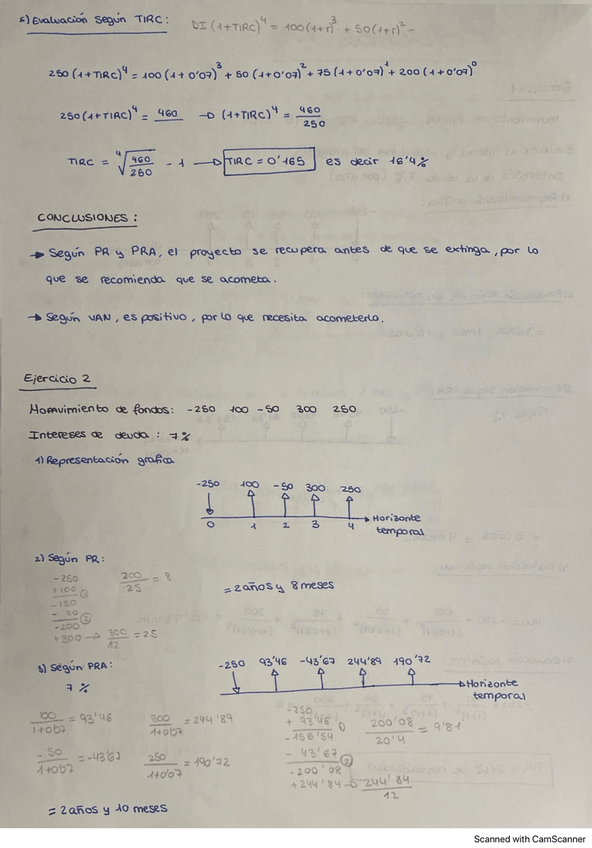 5) Evaluación según TIRC: DI (1+TIRC)^4 = 100(1+r)^3 + 50(1+r)^2 -
250 (1+TIRC)^4 = 100 (1+0'07)^3 + 50 (1+0'07)^2 + 75 (1+0'07)^1 + 200 (1+0'07)^0
250 (1+TIRC)^4 = 460 → (1+TIRC)^4 = 460/250
TIRC = ⁴√(460/250) - 1 → TIRC = 0'165 es decir 16'4%
CONCLUSIONES:
→ Según PR y PRA, el proyecto se recupera antes de que se extinga, por lo
que se recomienda que se acometa.
→ Según VAN, es positivo, por lo que necesita acometerlo.
Ejercicio 2
Movimiento de fondos: -250 100 -50 300 250
Intereses de deuda: 7%
1) Representación grafica
-250 100 -50 300 250
0 1 2 3 4 Horizonte
temporal
2) Según PR:
-250
+100
-150
-50
-200
+300 → 300/12 = 25
200/25 = 8
= 2 años y 8 meses
3) Según PRA:
7%
-250 93'46 -43'67 244'89 190'72
Horizonte
temporal
100/1+0'07 = 93'46 300/1+0'07 = 244'89
-50/1+0'07 = -43'67 250/1+0'07 = 190'72
-250
+ 93'46
- 156'54
- 43'67
- 200'08
+ 244'84 → 244'84/12
200'08/20'4 = 9'81
= 2 años y 10 meses
Scanned with CamScanner